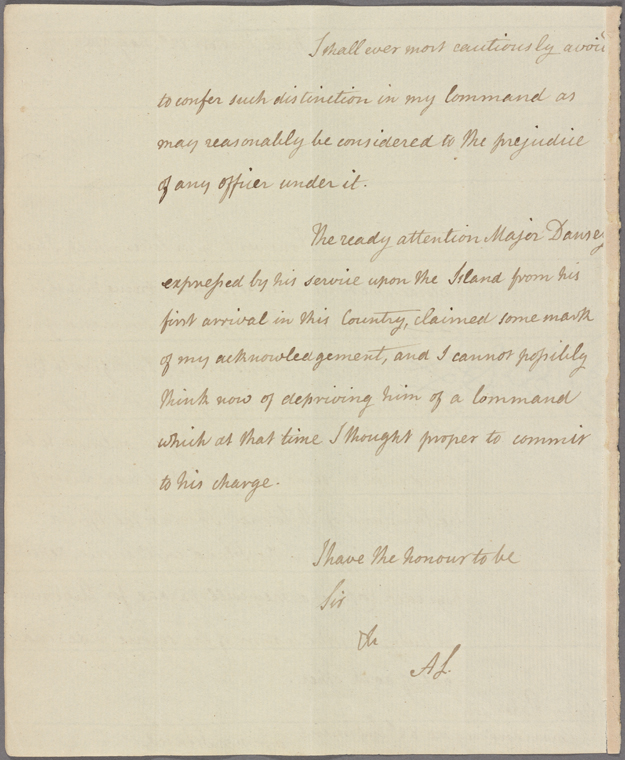 I shall ever most cautiously avoid
to confer such distinction in my Command as
may reasonably be considered to the prejudice
of any officer under it.
The ready attention Major Dansey
expressed by his service upon the Island from his
first arrival in this Country, claimed some mark
of my acknowledgement, and I cannot possibly
think now of depriving him of a Command
which at that time I thought proper to commit
to his charge.
I have the honour to be
Sir
&c
AL.